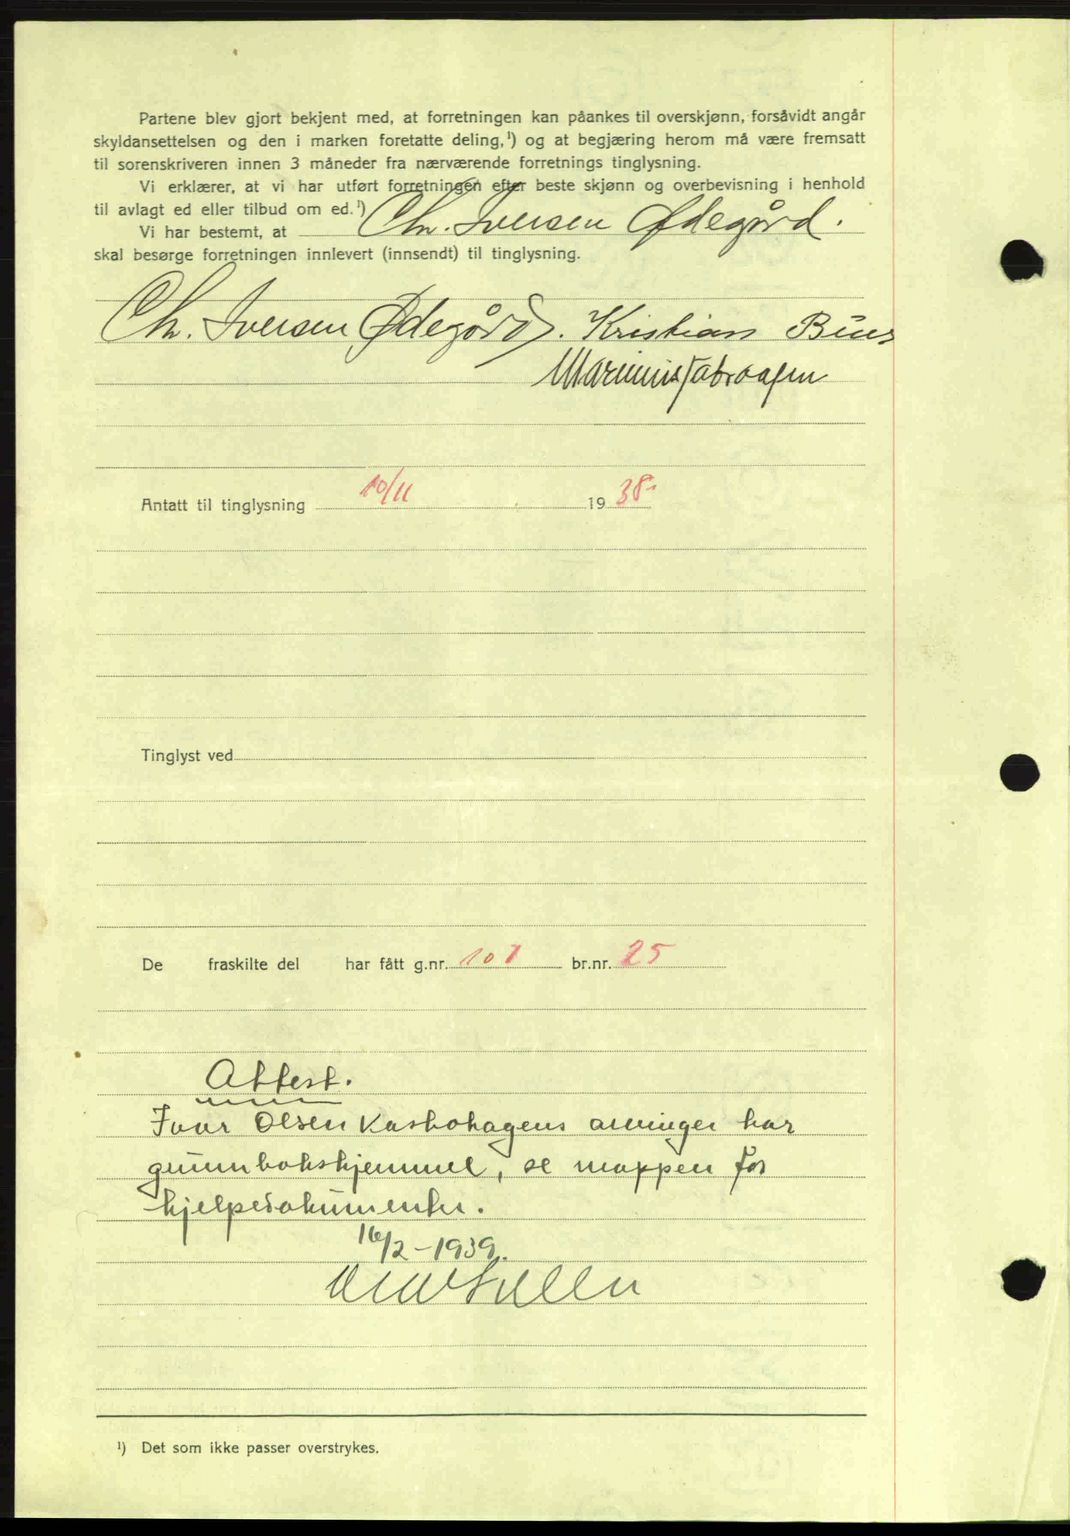 Partene blev gjort bekjent med, at forretningen kan påankes til overskjønn, forsåvidt angår
skyldansettelsen og den i marken foretatte deling,¹) og at begjæring herom må være fremsatt
til sorenskriveren innen 3 måneder fra nærværende forretnings tinglysning.
Vi erklærer, at vi har utført forretningen efter beste skjønn og overbevisning i henhold
til avlagt ed eller tilbud om ed.¹)
Vi har bestemt, at Chr. Iversen Ødegård.
skal besørge forretningen innlevert (innsendt) til tinglysning.
Chr. Iversen Ødegård. Kristian
Marinius
Antatt til tinglysning 10/11 1938
Tinglyst ved
De fraskilte del har fått g.nr. 107 br.nr. 25
Attest.
Ivar Olsen Kasbohagens arvinger har
grunnbokshjemmel, se mappen for
hjelpedokumenter.
16/2-1939.
¹) Det som ikke passer overstrykes.